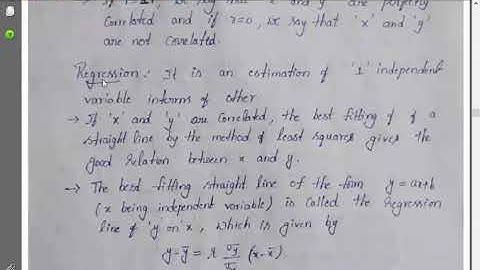 → If r=±1, we say that 'x' and 'y' are perfectly
Correlated and if r=0, we say that 'x' and 'y'
are not Correlated.
Regression:- It is an estimation of '1' independent
variable interms of other
→ If 'x' and 'y' are Correlated, the best fitting of a
straight line by the method of least squares gives the
good relation between x and y.
→ The best fitting straight line of the form y = ax+b
(x being independent variable) is called the Regression
line of 'y on' x, which is given by
y-ȳ = r σy/σx (x-x̄).